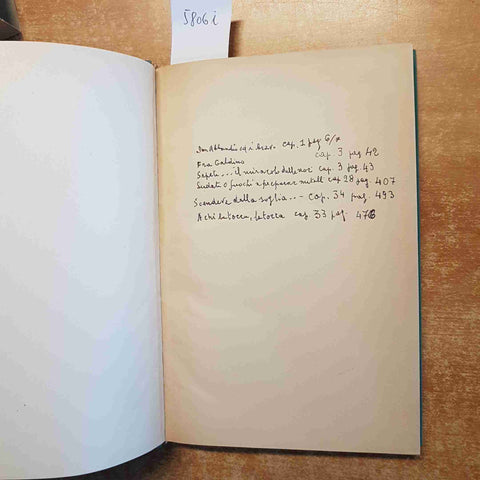 5806 i
Don Abbondio ed i bravi. cap. 1 pag. 6/
Fra Galdino cap. 3 pag 42
Sapete... il miracolo delle noci cap. 3 pag. 43
o a preparar cap 28 pag. 407
Scendeva dalla soglia... - cap. 34 pag 493
A chi la tocca, la tocca cap 33 pag. 476